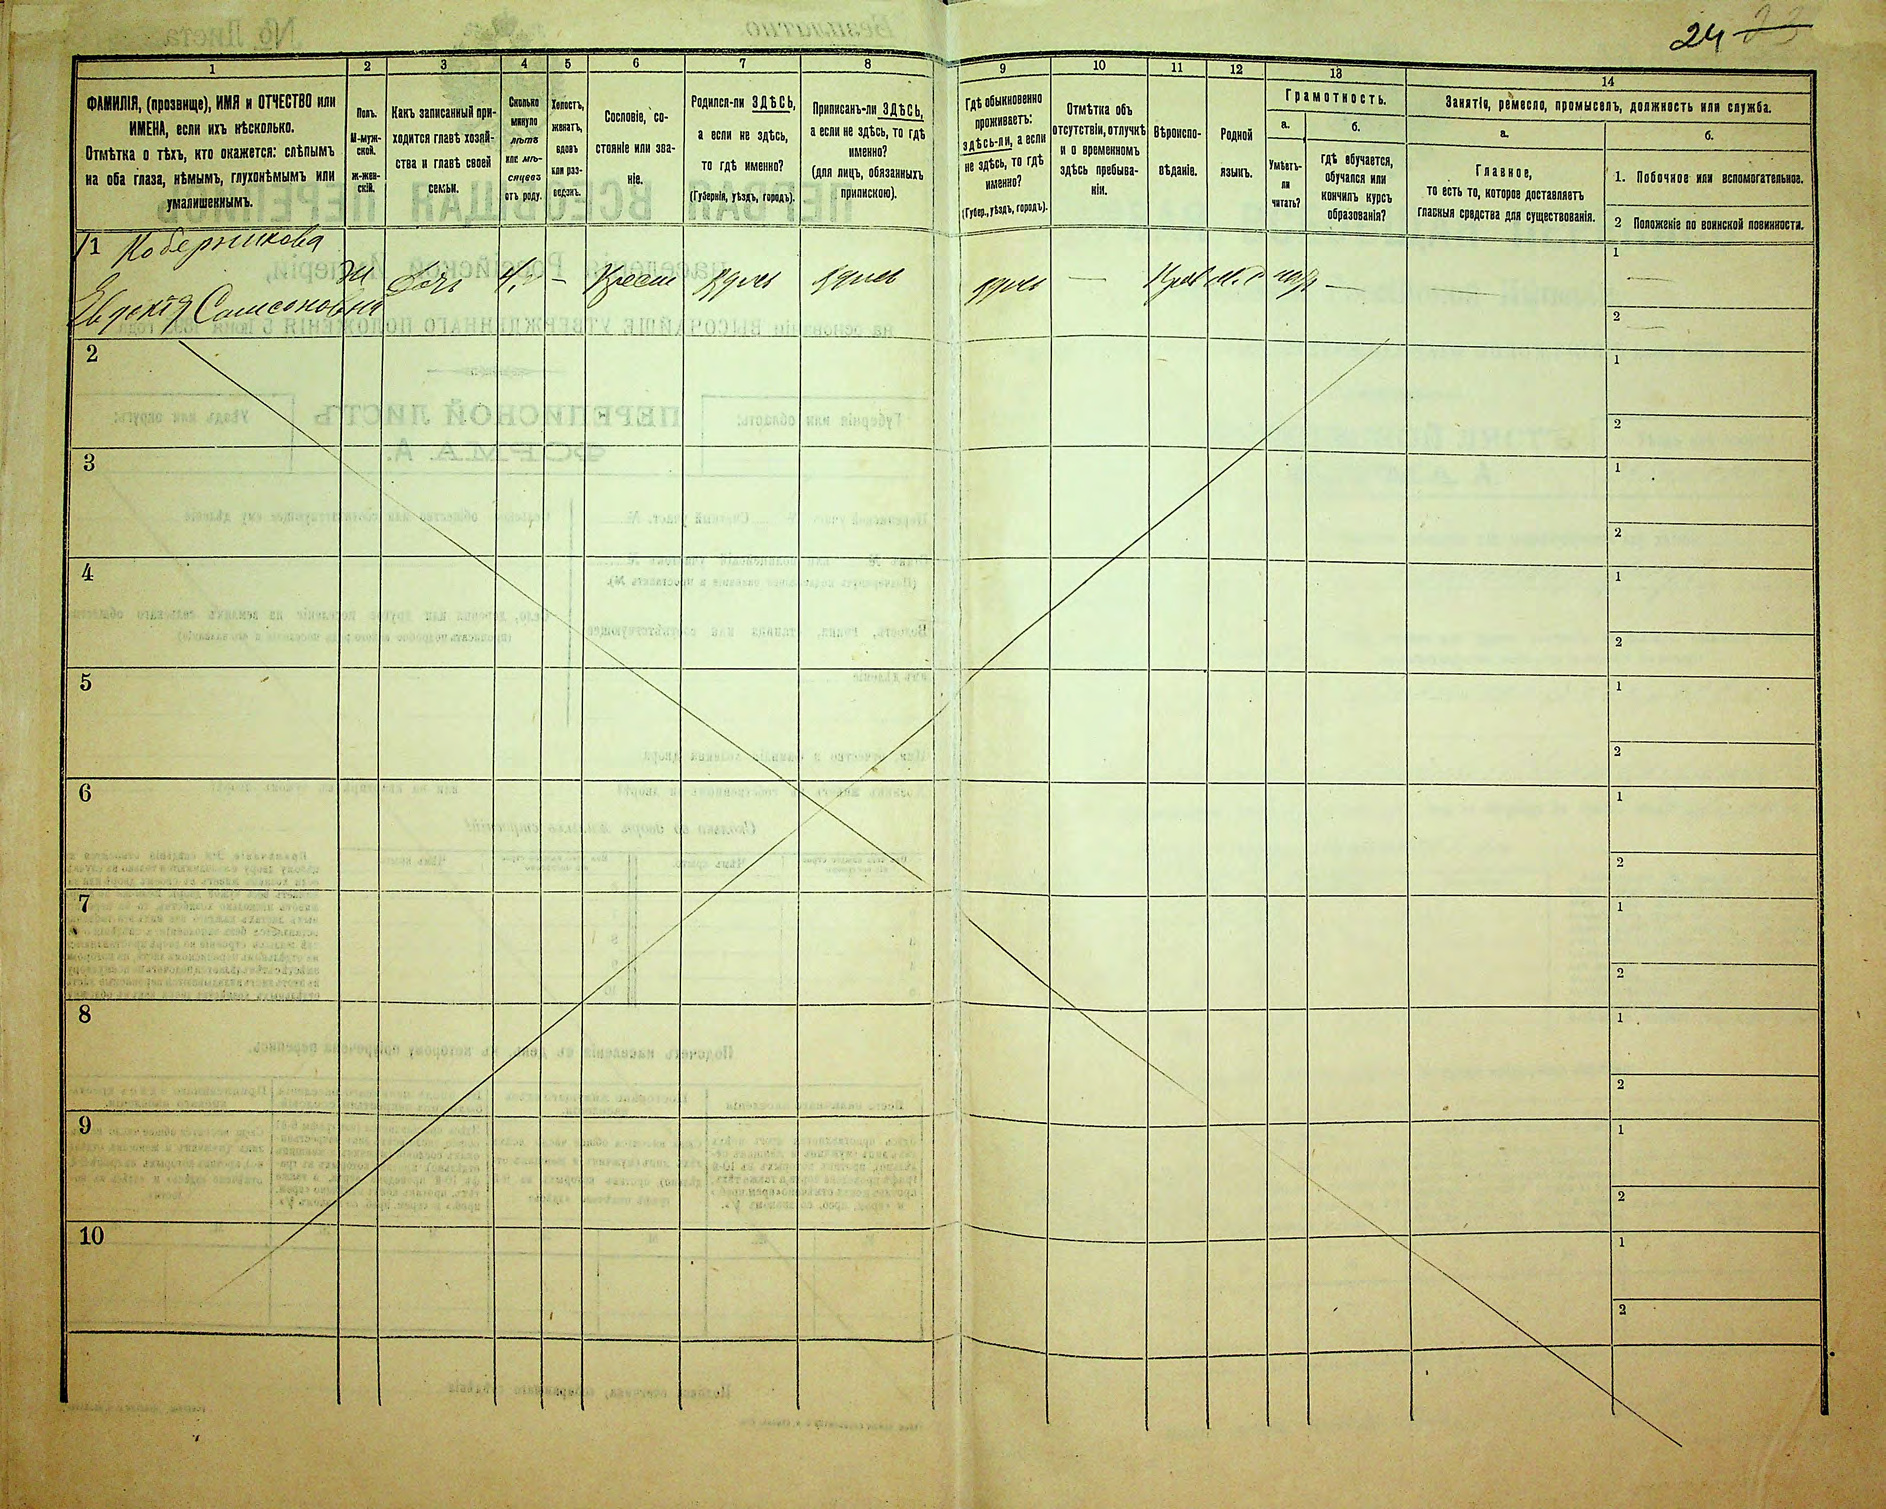 24 23
1
ФАМИЛІЯ, (прозвище), ИМЯ и ОТЧЕСТВО или
ИМЕНА, если ихъ нѣсколько.
Отмѣтка о тѣхъ, кто окажется: слѣпымъ
на оба глаза, нѣмымъ, глухонѣмымъ или
умалишеннымъ.
2
Полъ.
М-муж-
ской.
ж-жен-
скій.
3
Какъ записанный при-
ходится главѣ хозяй-
ства и главѣ своей
семьи.
4
Сколько
минуло
лѣтъ
или мѣ-
сяцевъ
отъ роду.
5
Холостъ,
женатъ,
вдовъ
или раз-
веденъ.
6
Сословіе, со-
стояніе или зва-
ніе.
7
Родился-ли ЗДѢСЬ,
а если не здѣсь,
то гдѣ именно?
(Губернія, уѣздъ, городъ).
8
Приписанъ-ли ЗДѢСЬ,
а если не здѣсь, то гдѣ
именно?
(для лицъ, обязанныхъ
припискою).
9
Гдѣ обыкновенно
проживаетъ:
здѣсь-ли, а если
не здѣсь, то гдѣ
именно?
(Губер., уѣздъ, городъ).
10
Отмѣтка объ
отсутствіи, отлучкѣ
и о временномъ
здѣсь пребыва-
ніи.
11
Вѣроиспо-
вѣданіе.
12
Родной
языкъ.
13
Грамотность.
а.
Умѣетъ-
ли
читать?
б.
гдѣ обучается,
обучался или
кончилъ курсъ
образованія?
14
Занятіе, ремесло, промыселъ, должность или служба.
а.
Главное,
то есть то, которое доставляетъ
главныя средства для существованія.
б.
1. Побочное или вспомогательное.
2 Положеніе по воинской повинности.
1 Коберникова
Евдокія Самсоновна
ж дочь – Крест здѣсь здѣсь здѣсь — —
1
2
2
1
2
3
1
2
4
1
2
5
1
2
6
1
2
7
1
2
8
1
2
9
1
2
10
1
2